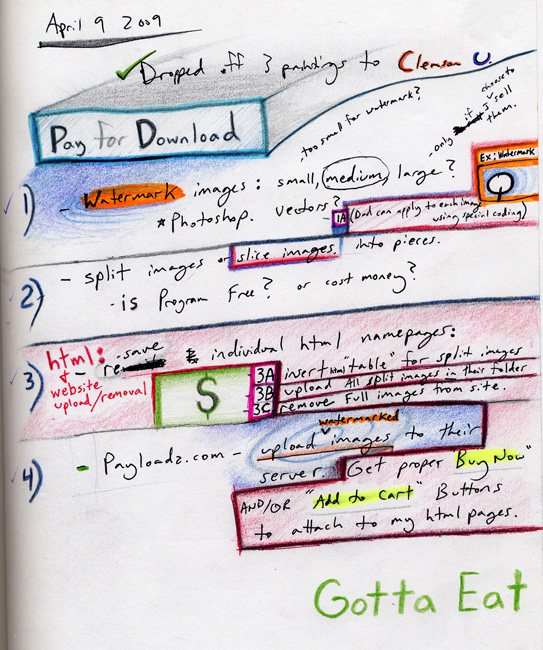 April 9 2009
✓ Dropped off 3 paintings to Clemson U.
Pay for Download
- too small for watermark?
- only if I choose to sell them.
Ex: Watermark
1) - Watermark images: small, medium, large?
* Photoshop. vectors?
1A (Dad can apply to each image using special coding)
2) - split images or slice images. into pieces.
- is Program Free? or cost money?
3) html: - save individual html namepages:
website upload/removal
$
3A insert html "table" for split images
3B upload All split images in their folder
3C remove Full images from site.
4) - Payloadz.com - upload watermarked images to their
server. Get proper "Buy Now"
AND/OR "Add to Cart" Buttons
to attach to my html pages.
Gotta Eat